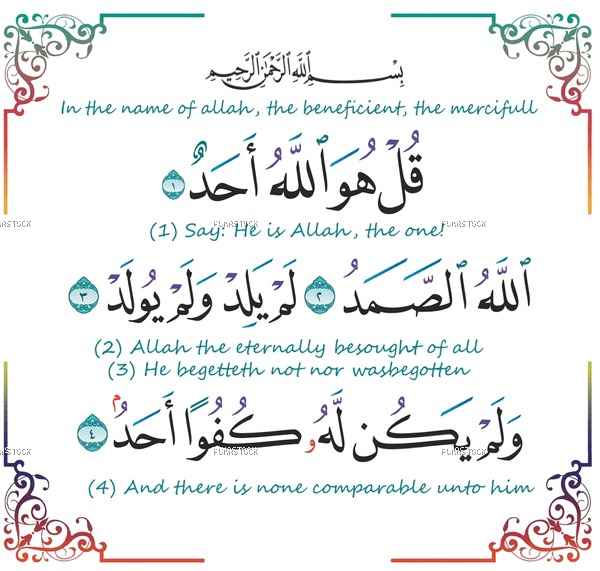 بِسْمِ ٱللَّهِ ٱلرَّحْمَٰنِ ٱلرَّحِيمِ
In the name of allah, the beneficient, the mercifull
قُلْ هُوَ ٱللَّهُ أَحَدٌ ١
(1) Say: He is Allah, the one!
FUMASTOCK FUMASTOCK FUMASTOCK
ٱللَّهُ ٱلصَّمَدُ ٢ لَمْ يَلِدْ وَلَمْ يُولَدْ ٣
(2) Allah the eternally besought of all
(3) He begetteth not nor wasbegotten
وَلَمْ يَكُن لَّهُۥ كُفُوًا أَحَدٌۢ ٤
FUMASTOCK FUMASTOCK FUMASTOCK
(4) And there is none comparable unto him